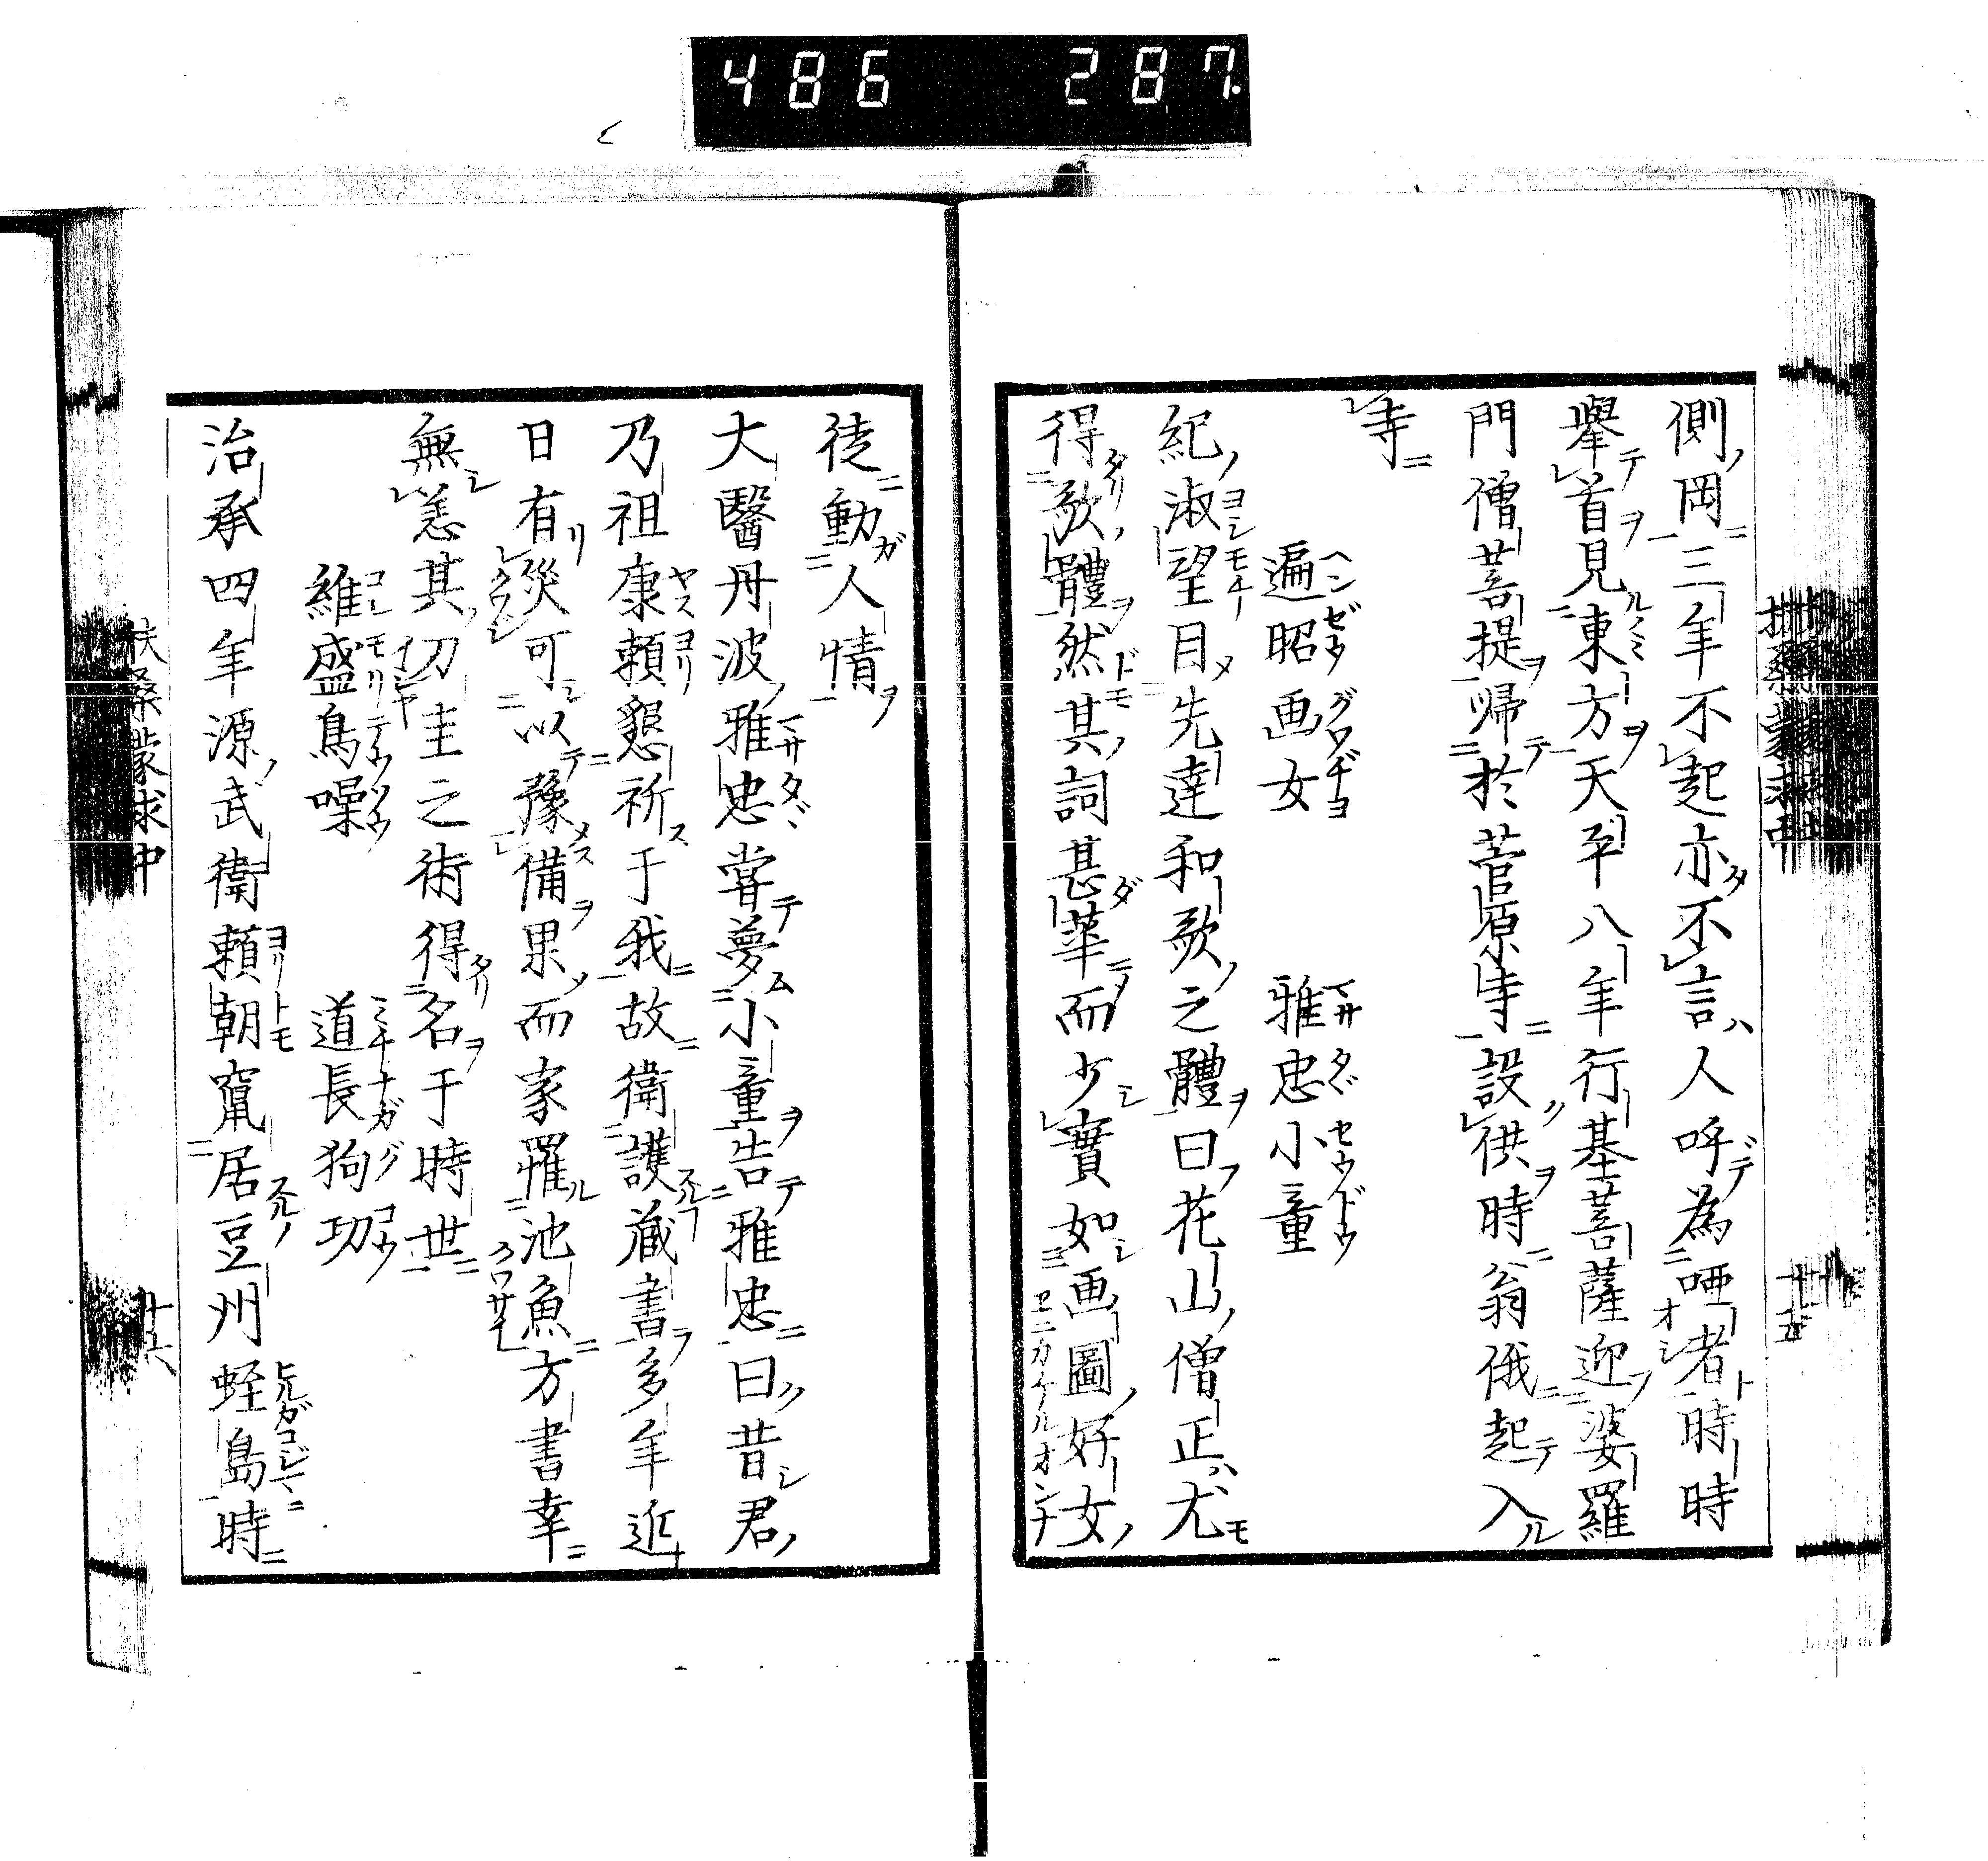 486 287.
側岡三年不起亦不言人呼為唖者時時
擧首見東方天平八年行基菩薩迎婆羅
門僧菩提帰於菅原寺設供時翁俄起入
寺
遍昭画女 雅忠小童
紀淑望目先達和歌之體曰花山僧正尤
得歌體然其詞甚華而少實如画圖好女
徒動人情
大醫丹波雅忠嘗夢小童告雅忠曰昔君
乃祖康頼懇祈于我故衛護蔵書多年近
日有災可以豫備果而家罹池魚方書幸
無恙其刀圭之術得名于時世
維盛鳥噪 道長狗功
治承四年源武衛頼朝竄居豆州蛭島時
扶桑蒙求中 十六